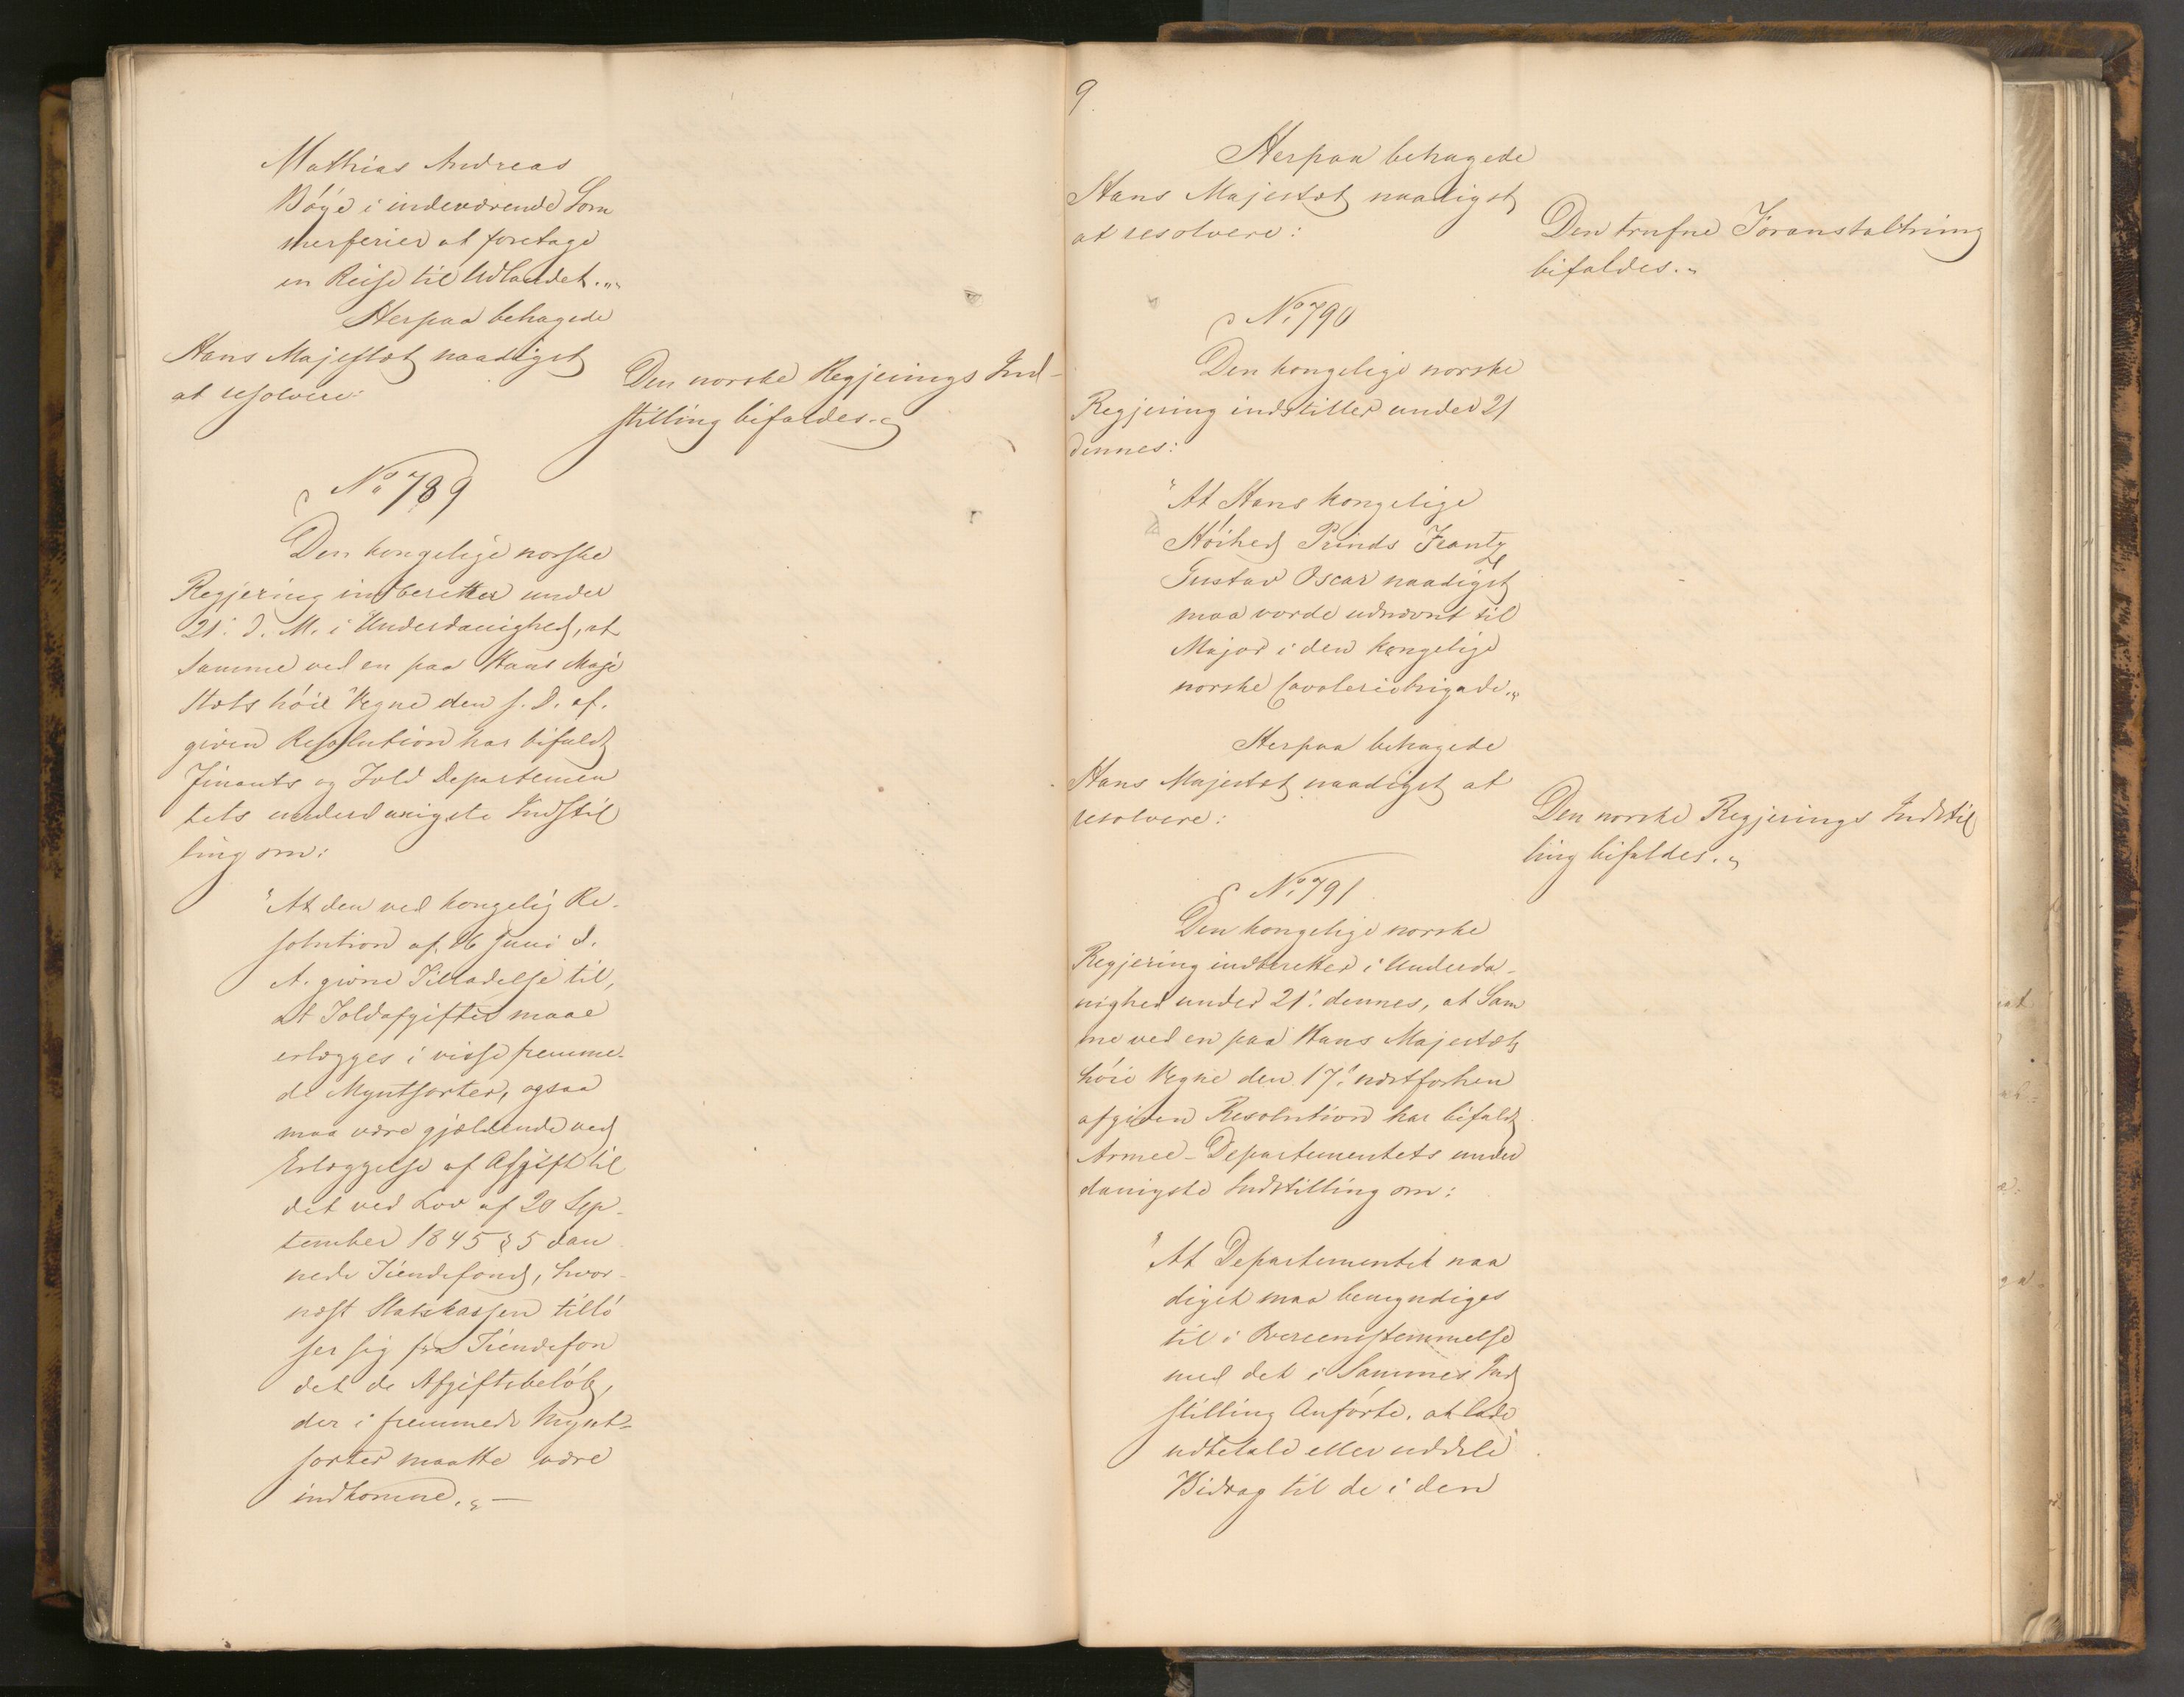 Mathias Andreas
Böye i indeværende Som
merferier at foretage
en Reise til Udlandet.„
Herpaa behagede
Hans Majestæt naadigst
at resolvere:
Den norske Regjerings Ind-
stilling bifaldes.„
No 789
Den kongelige norske
Regjering indberetter under
21. d. M. i Underdanighed, at
Samme ved en paa Hans Maje
stæts höie Vegne den s. D. af.
given Resolution har bifaldt
Finants og Told Departemen
tets underdanigste Indstil
ling om:
"At den ved kongelig Re.
solution af 16 Juni d.
A. givne Tilladelse til,
at Toldafgifter maae
erlægges i visse fremme.
de Myntsorter, ogsaa
maa være gjældende ved
Erlæggelse af Afgift til
det ved Lov af 20 Sep.
tember 1845 § 5 dan
nede Tiendefond, hvor-
næst Statskassen tillö
ser sig fra Tiendefon
det de Afgiftsbelöb,
der i fremmede Mynt-
sorter maatte være
indkomne.„ —
9
Herpaa behagede
Hans Majestæt naadigst
at resolvere:
Den trufne Foranstaltning
bifaldes.„
No 790
Den kongelige norske
Regjering indstiller under 21
dennes:
"At Hans Kongelige
Höihed Prinds Frantz
Gustav Oscar naadigst
maa vorde udnævnt til
Major i den kongelige
norske Cavaleriebrigade.„
Herpaa behagede
Hans Majestæt naadigst at
resolvere:
Den norske Regjerings Indstil
ling bifaldes.„
No 791
Den kongelige norske
Regjering indberetter i Underda-
nighed under 21. dennes, at Sam
me ved en paa Hans Majestæts
höie Vegne den 17. næstforhen
afgiven Resolution har bifaldt
Armee-Departementets under
danigste Indstilling om:
"At Departementet naa
digst maa bemyndiges
til i Overeensstemmelse
med det i Sammes Ind
stilling Anförte, at lade
udbetale eller uddele
Bidrag til de i den